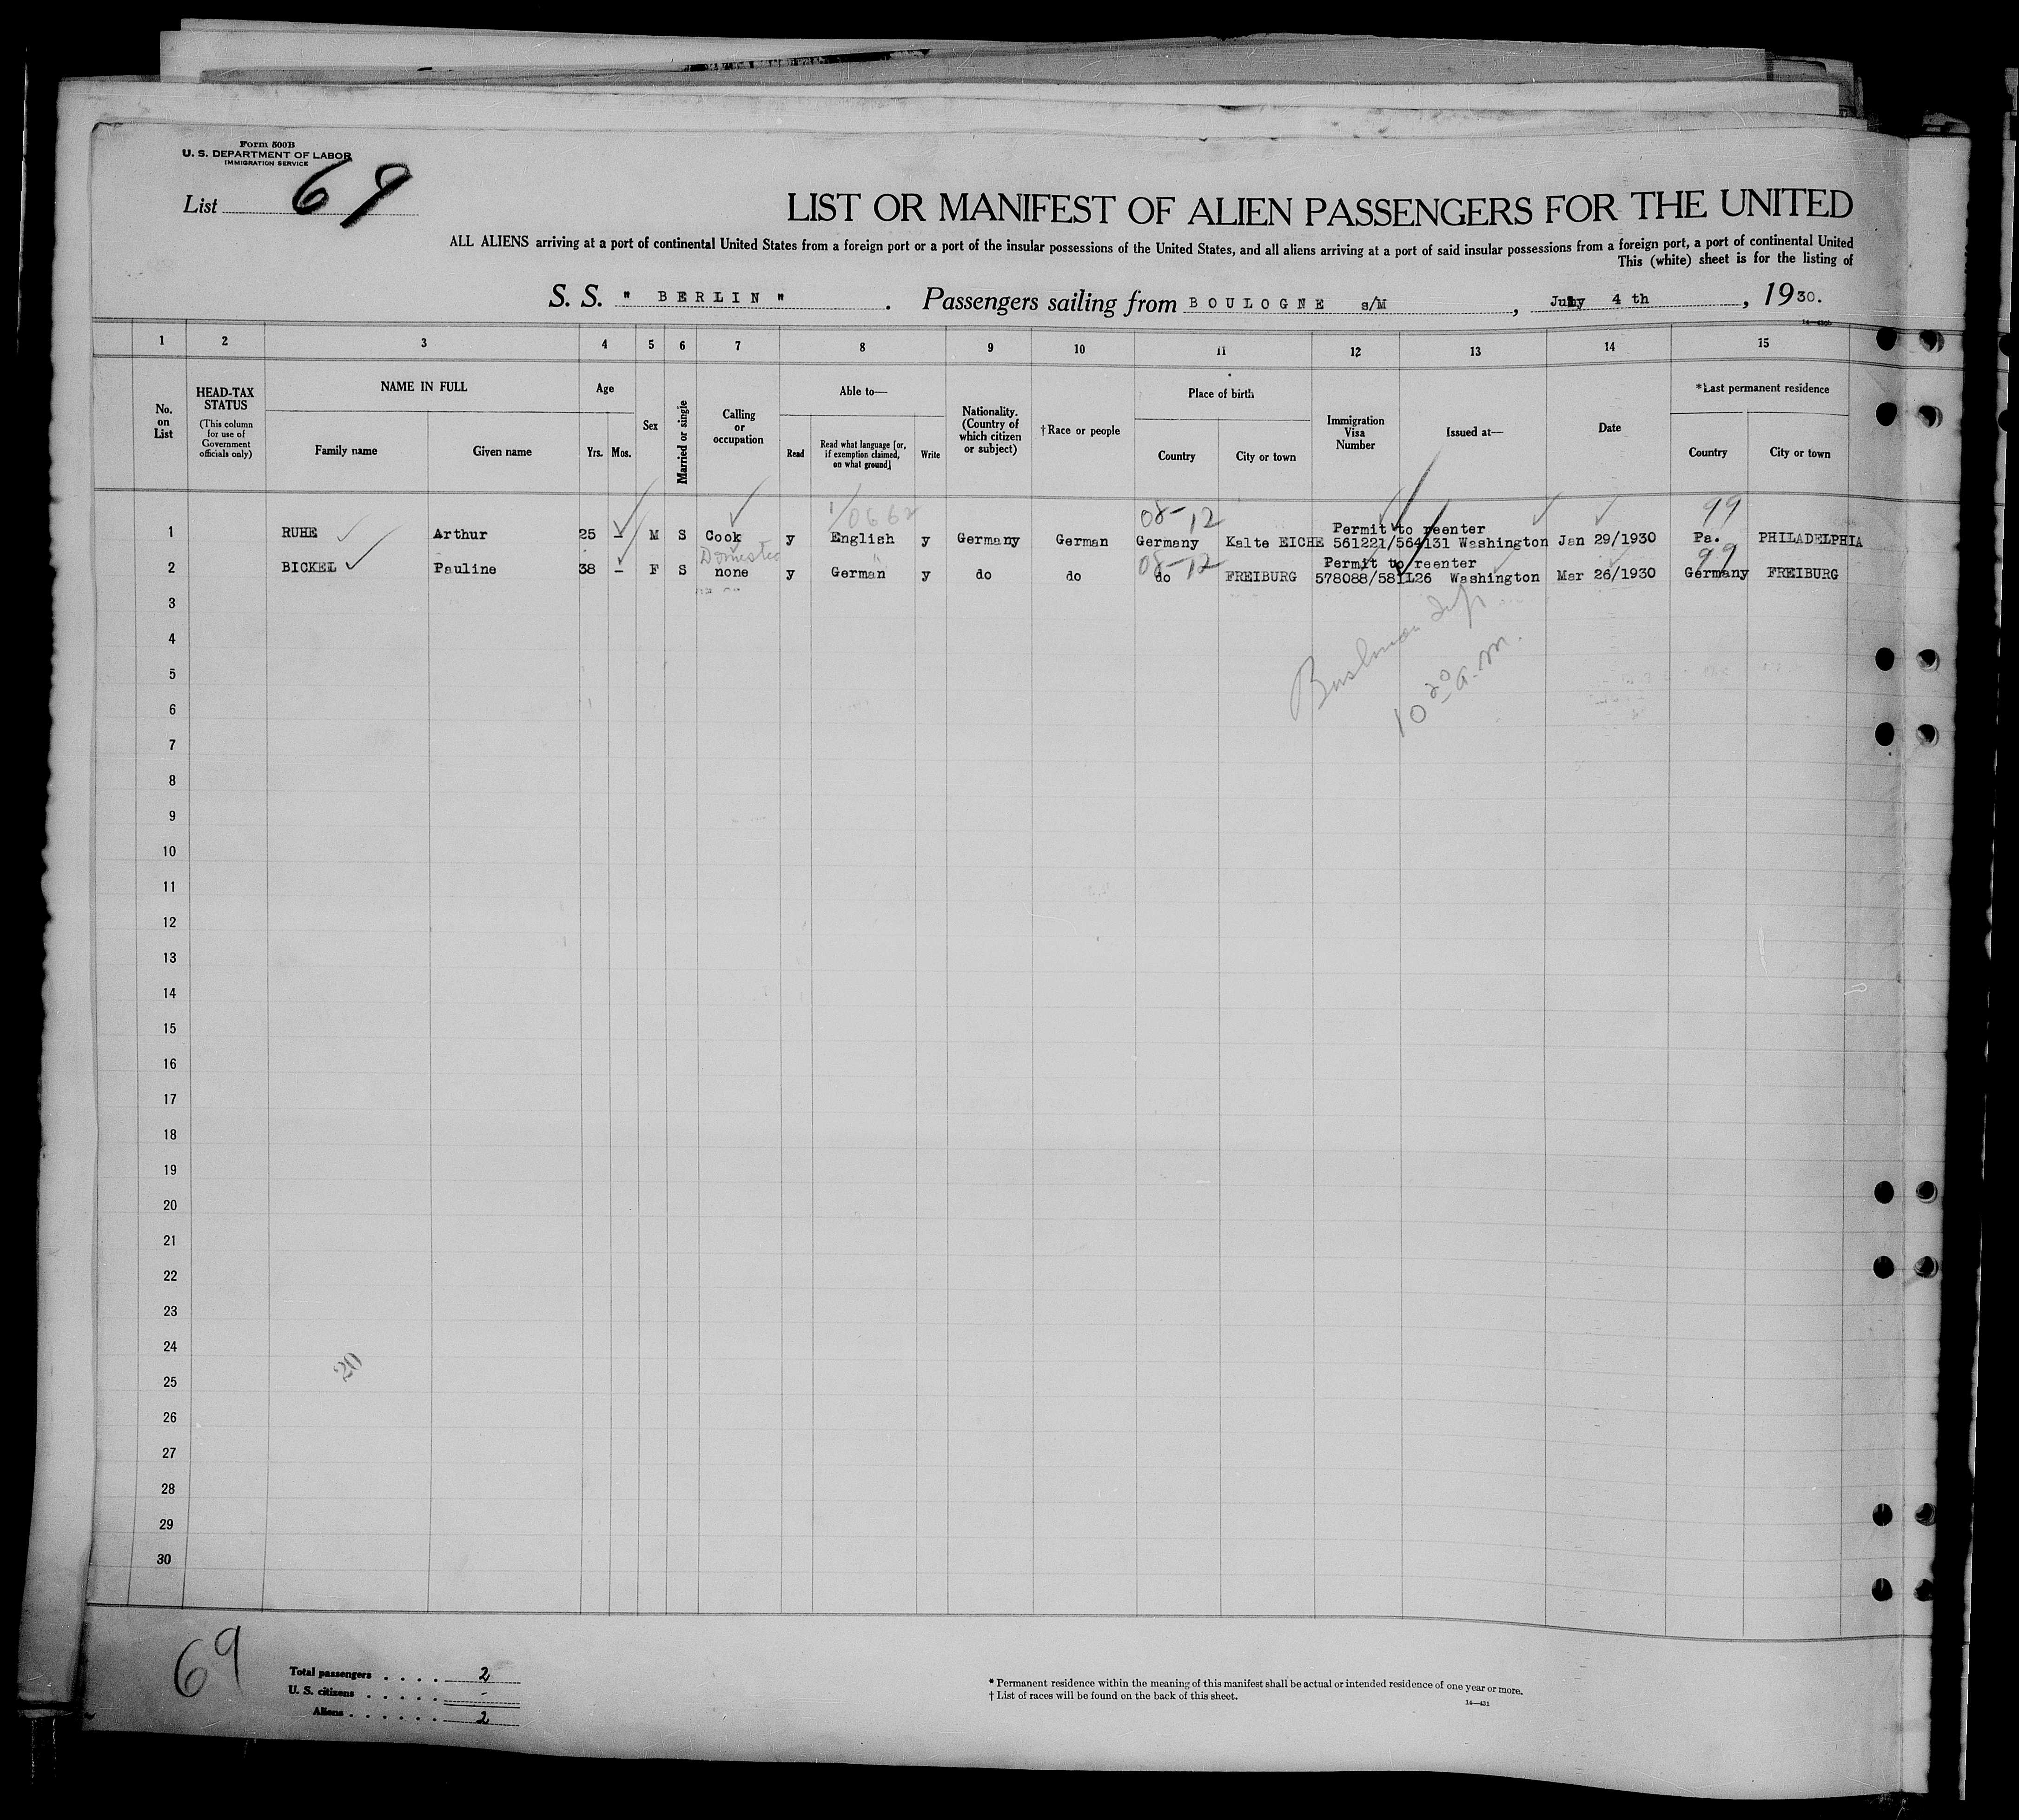 Form 500B
U. S. DEPARTMENT OF LABOR
IMMIGRATION SERVICE
List 69
LIST OR MANIFEST OF ALIEN PASSENGERS FOR THE UNITED
ALL ALIENS arriving at a port of continental United States from a foreign port or a port of the insular possessions of the United States, and all aliens arriving at a port of said insular possessions from a foreign port, a port of continental United
This (white) sheet is for the listing of
S. S. " BERLIN " . Passengers sailing from BOULOGNE s/M , July 4 th , 1930.
1 2 3 4 5 6 7 8 9 10 11 12 13 14 15
No. on List
HEAD-TAX STATUS
(This column for use of Government officials only)
NAME IN FULL
Family name Given name
Age
Yrs. Mos.
Sex
Married or single
Calling or occupation
Able to—
Read
Read what language [or, if exemption claimed, on what ground]
Write
Nationality. (Country of which citizen or subject)
†Race or people
Place of birth
Country City or town
Immigration Visa Number
Issued at—
Date
*Last permanent residence
Country City or town
08-12 99
Permit to reenter
1 RUHE Arthur 25 - M S Cook y English y Germany German Germany Kalte EICHE 561221/564131 Washington Jan 29/1930 Pa. PHILADELPHIA
Domestic 08-12 99
Permit to reenter
2 BICKEL Pauline 38 - F S none y German y do do do FREIBURG 578088/581126 Washington Mar 26/1930 Germany FREIBURG
3
4
5
6
10 20 a.m.
7
8
9
10
11
12
13
14
15
16
17
18
19
20
21
22
23
24
20
25
26
27
28
29
30
69
Total passengers . . . . 2
U. S. citizens . . . . . -
Aliens . . . . . . 2
* Permanent residence within the meaning of this manifest shall be actual or intended residence of one year or more.
† List of races will be found on the back of this sheet.
14—431